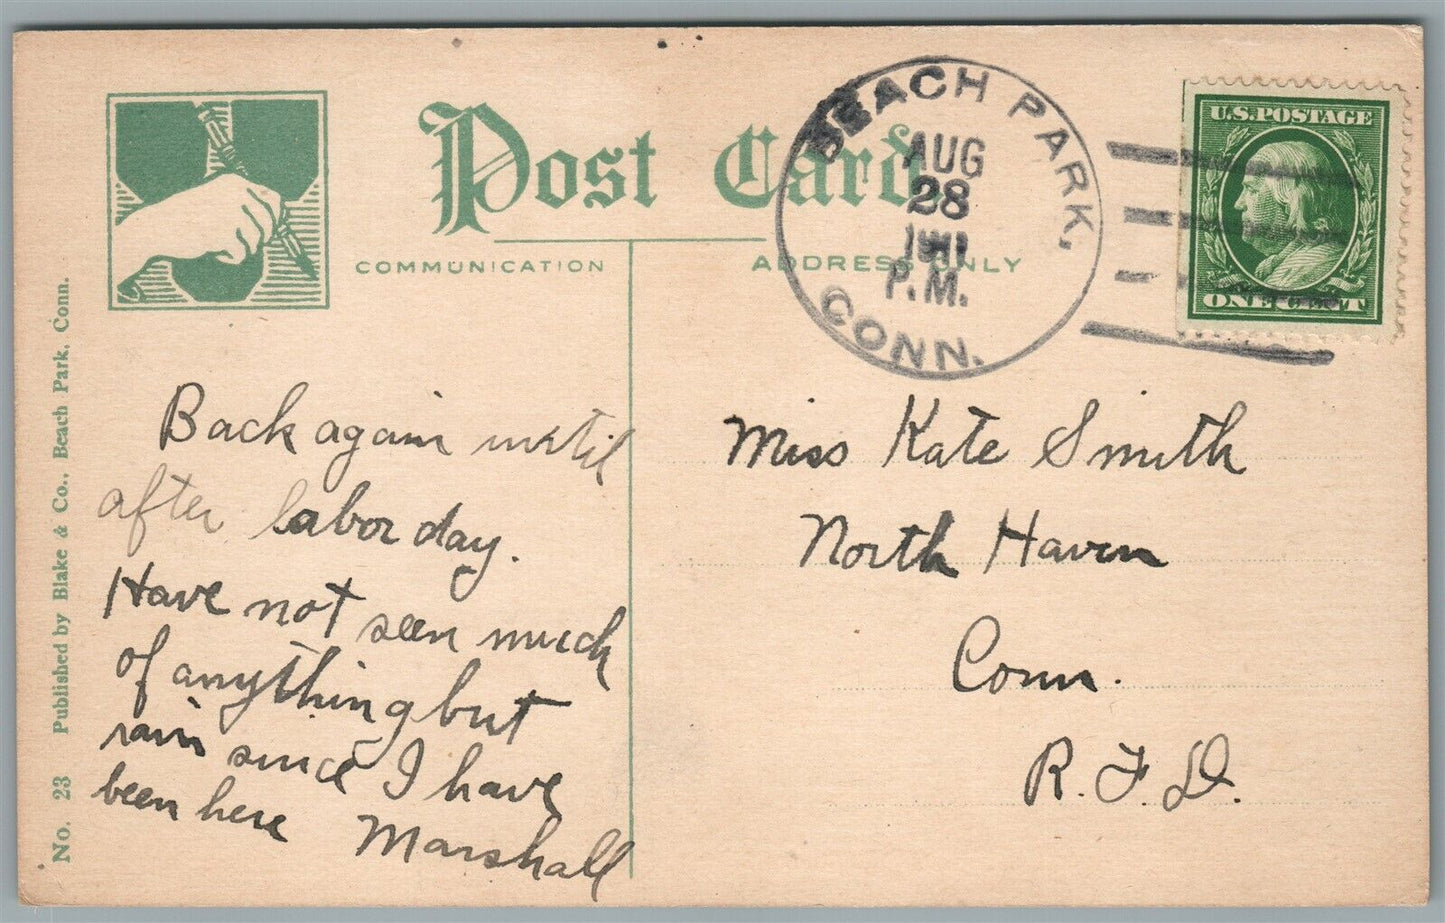 Post Card
COMMUNICATION
ADDRESS ONLY
BEACH PARK,
AUG
28
1911
P.M.
CONN.
U.S. POSTAGE
ONE CENT
No. 23 Published by Blake & Co., Beach Park, Conn.
Back again until
after labor day.
Have not seen much
of anything but
rain since I have
been here Marshall
Miss Kate Smith
North Haven
Conn.
R.F.D.